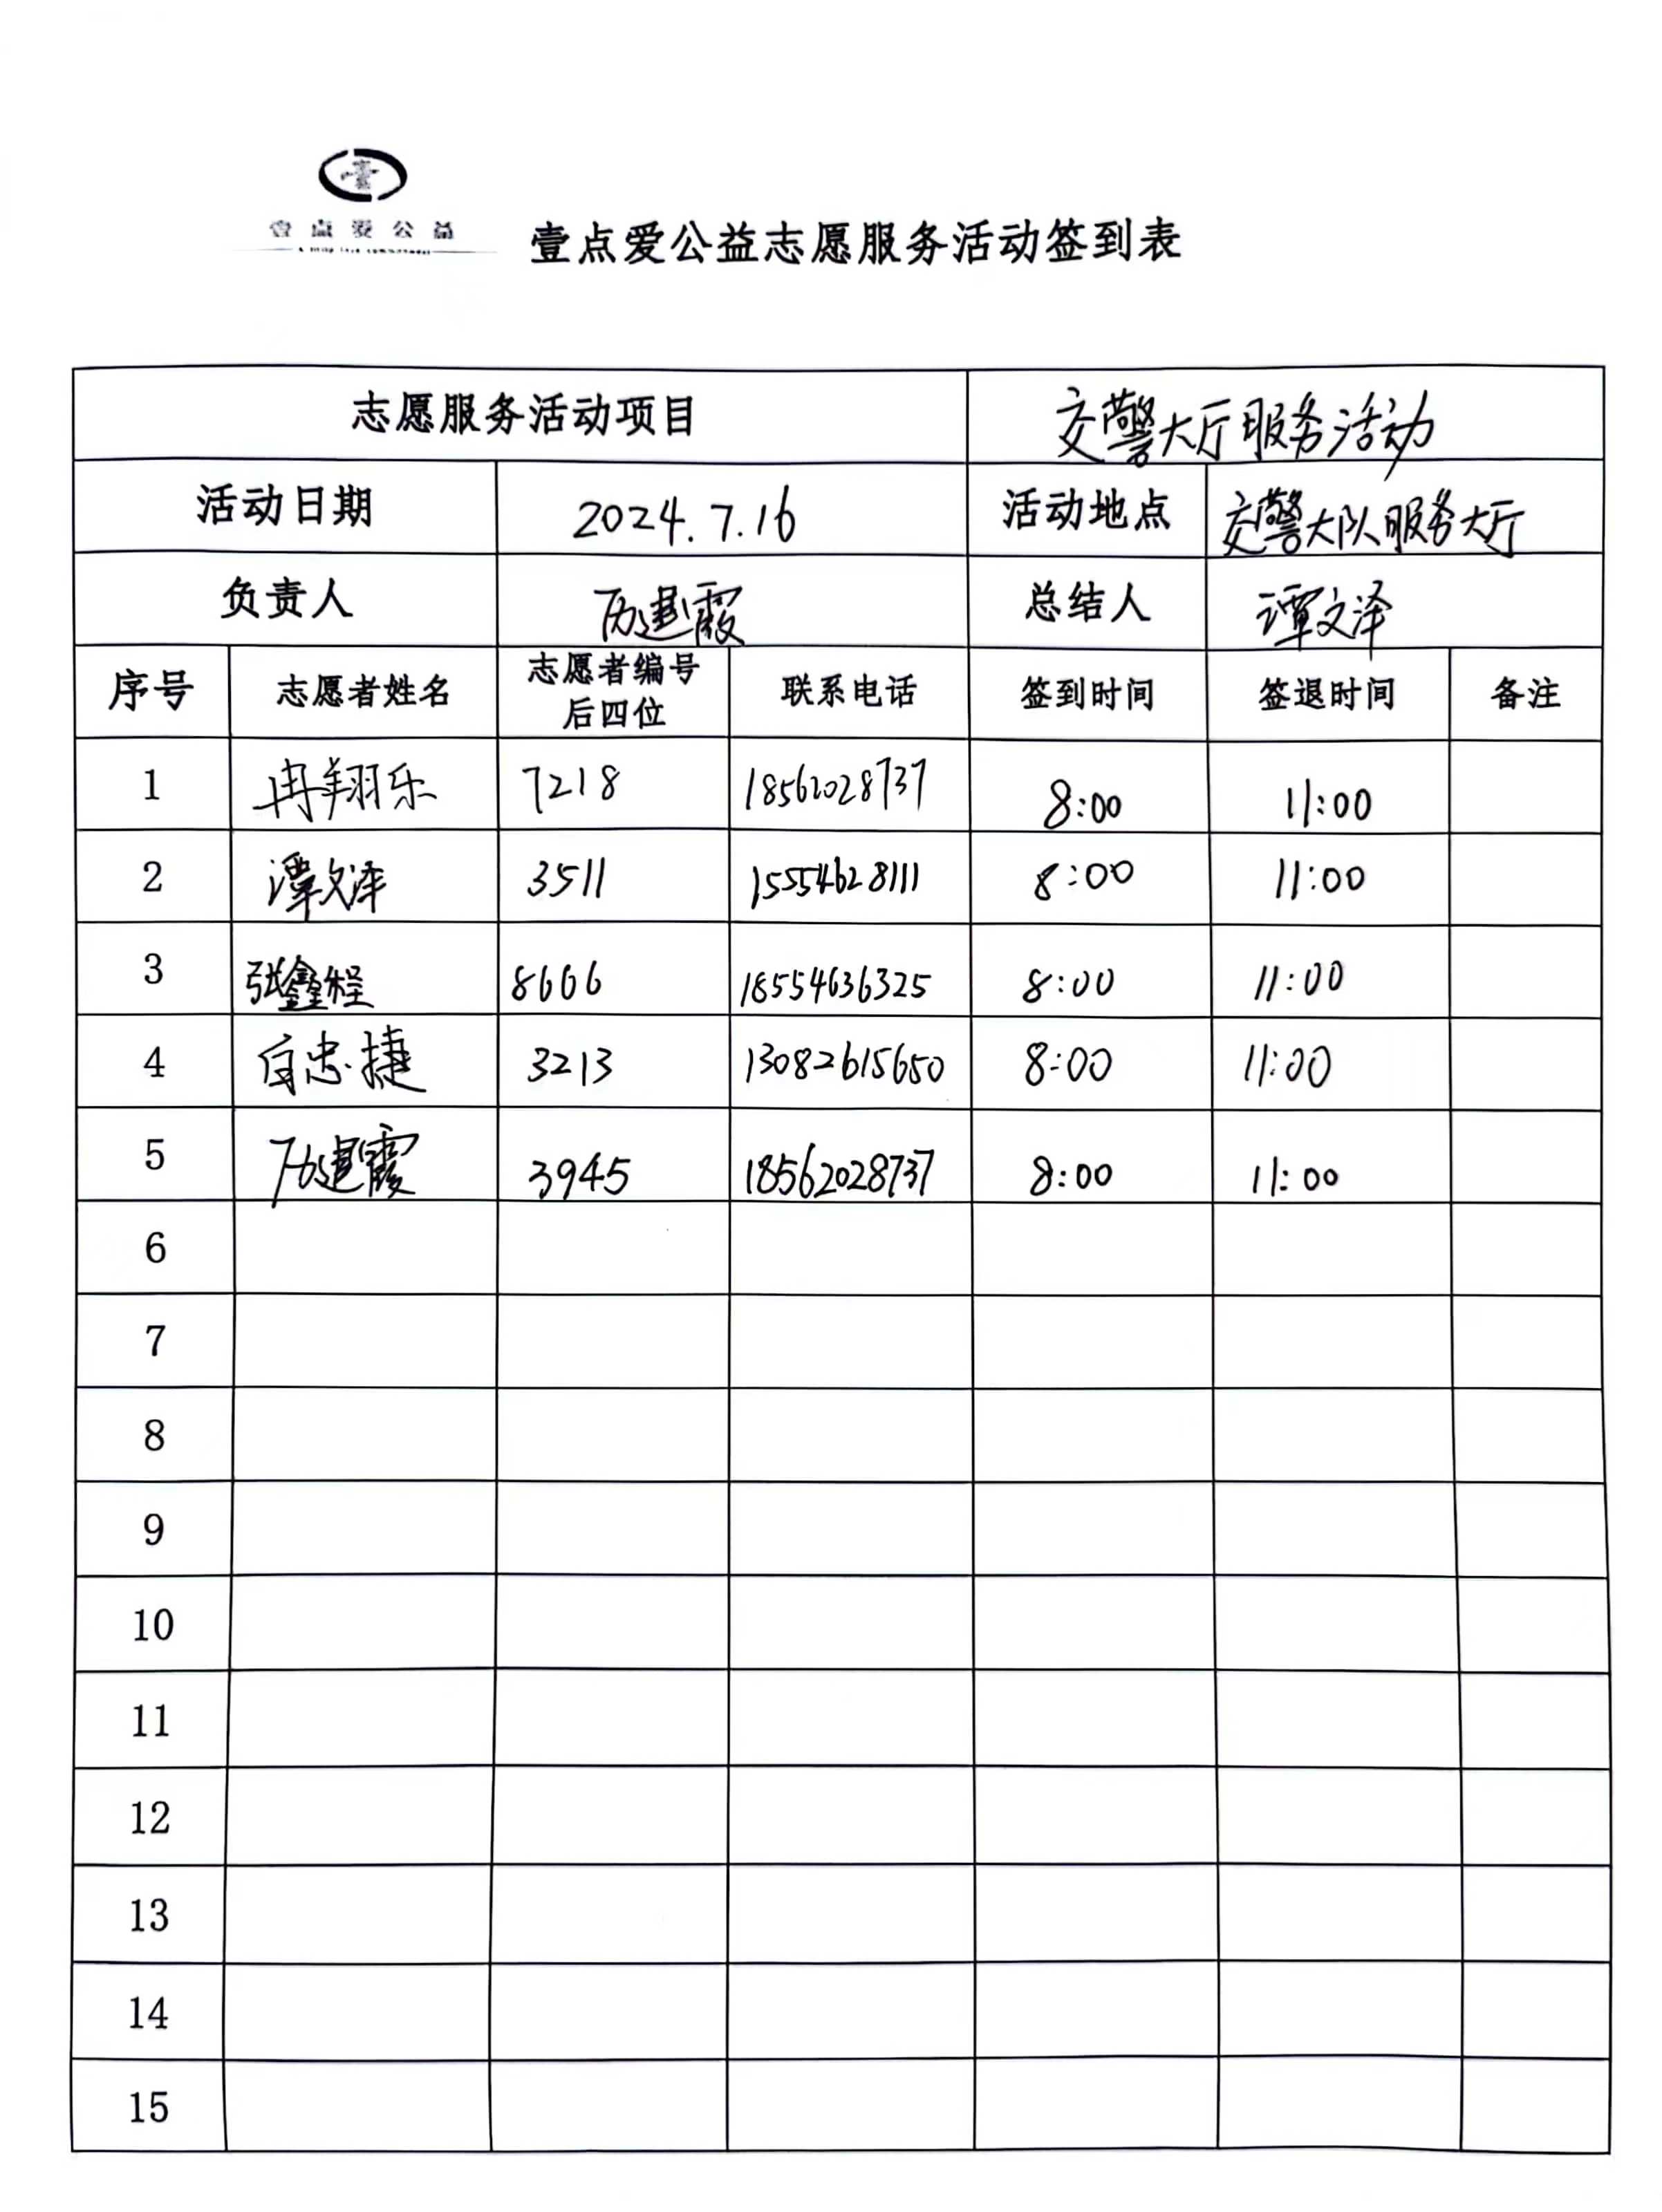 壹点爱公益
壹点爱公益志愿服务活动签到表
志愿服务活动项目 交警大厅服务活动
活动日期 2024.7.16 活动地点 交警大队服务大厅
负责人 历建霞 总结人 谭文泽
序号 志愿者姓名 志愿者编号 联系电话 签到时间 签退时间 备注
后四位
1 冉翔乐 7218 18562028737 8:00 11:00
2 谭文泽 3511 15554628111 8:00 11:00
3 张鑫程 8666 18554636325 8:00 11:00
4 白忠捷 3213 13082615650 8:00 11:00
5 历建霞 3945 18562028737 8:00 11:00
6
7
8
9
10
11
12
13
14
15